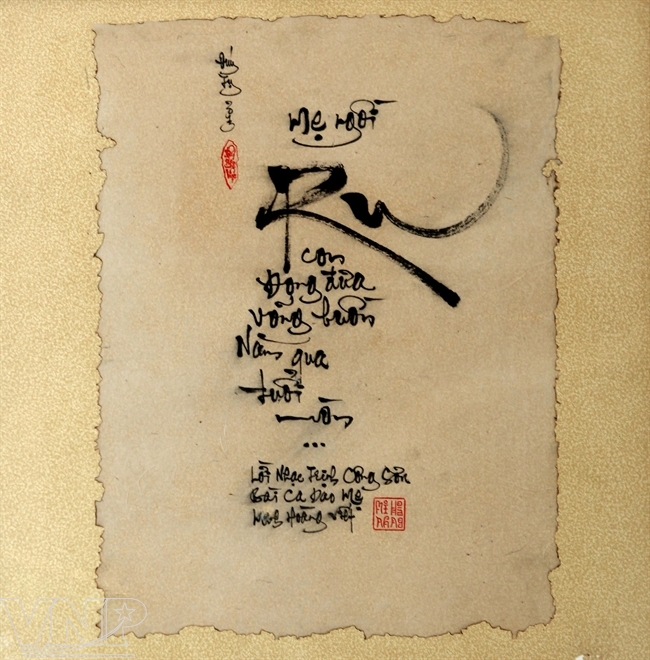 Mẹ ngồi
Ru
con
Đong đưa
võng buồn
Năm qua
tuổi
mòn
...
Lời Nhạc Trịnh Công Sơn
Bài Ca Dao Mẹ
Minh Hoàng Viết